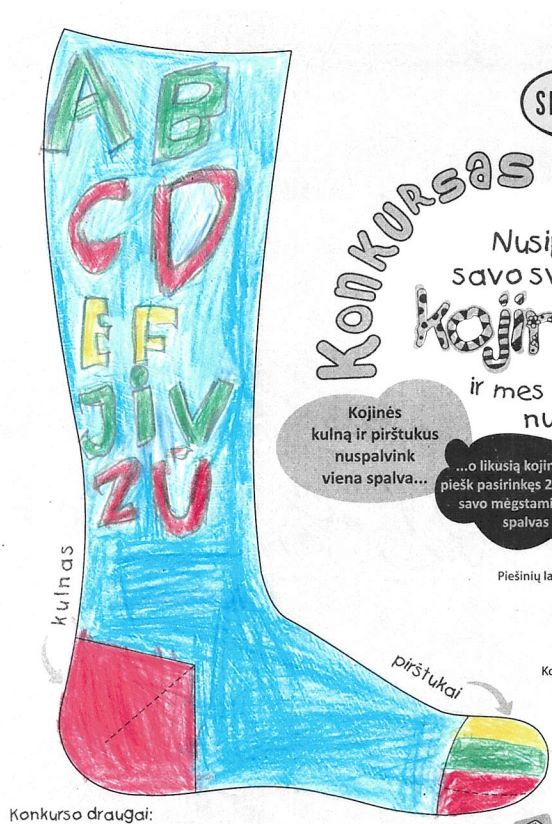 A B
C D
E F
J i V
Z U
Konkursas
savo
ir mes
Kojinės
kulną ir pirštukus
nuspalvink
viena spalva...
...o likusią
piešk pasirinkęs 2
savo
spalvas
Piešinių
kulnas
pirštukai
Konkurso draugai: